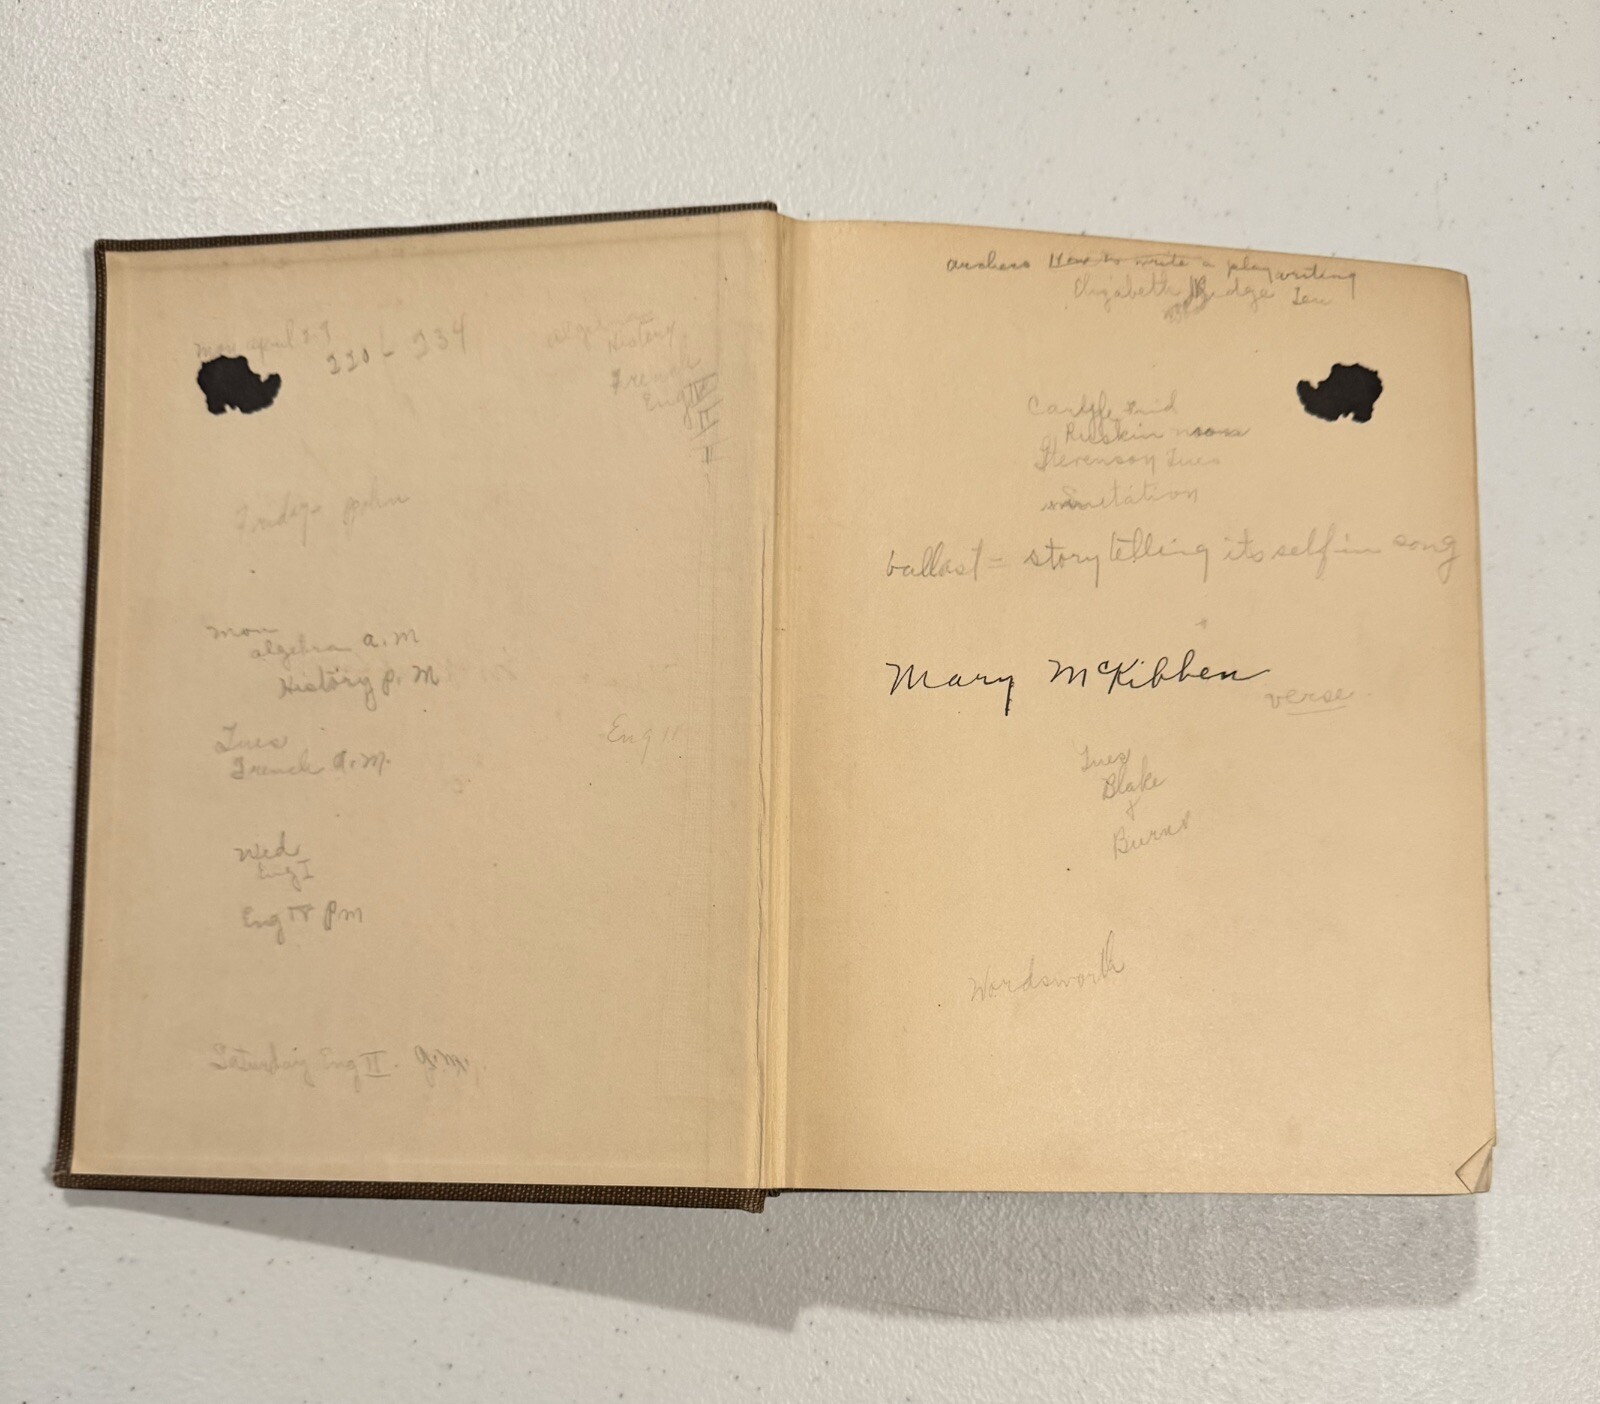 mon april 29
220 - 234
algebra
History
French
Eng IV
II
II
Friday
mon
algebra a.m
History p.M
Tues
French a.M.
Eng II
Wed
Eng I
Eng IV pm
Saturday Eng II. a.m.
archers How to write a play writing
Elizabeth
Carlyle
Ruskin
Stevenson Tues
imitation
ballast = story telling its self in song
Mary McKibben
verse
Tues
Blake
&
Burns
Wordsworth